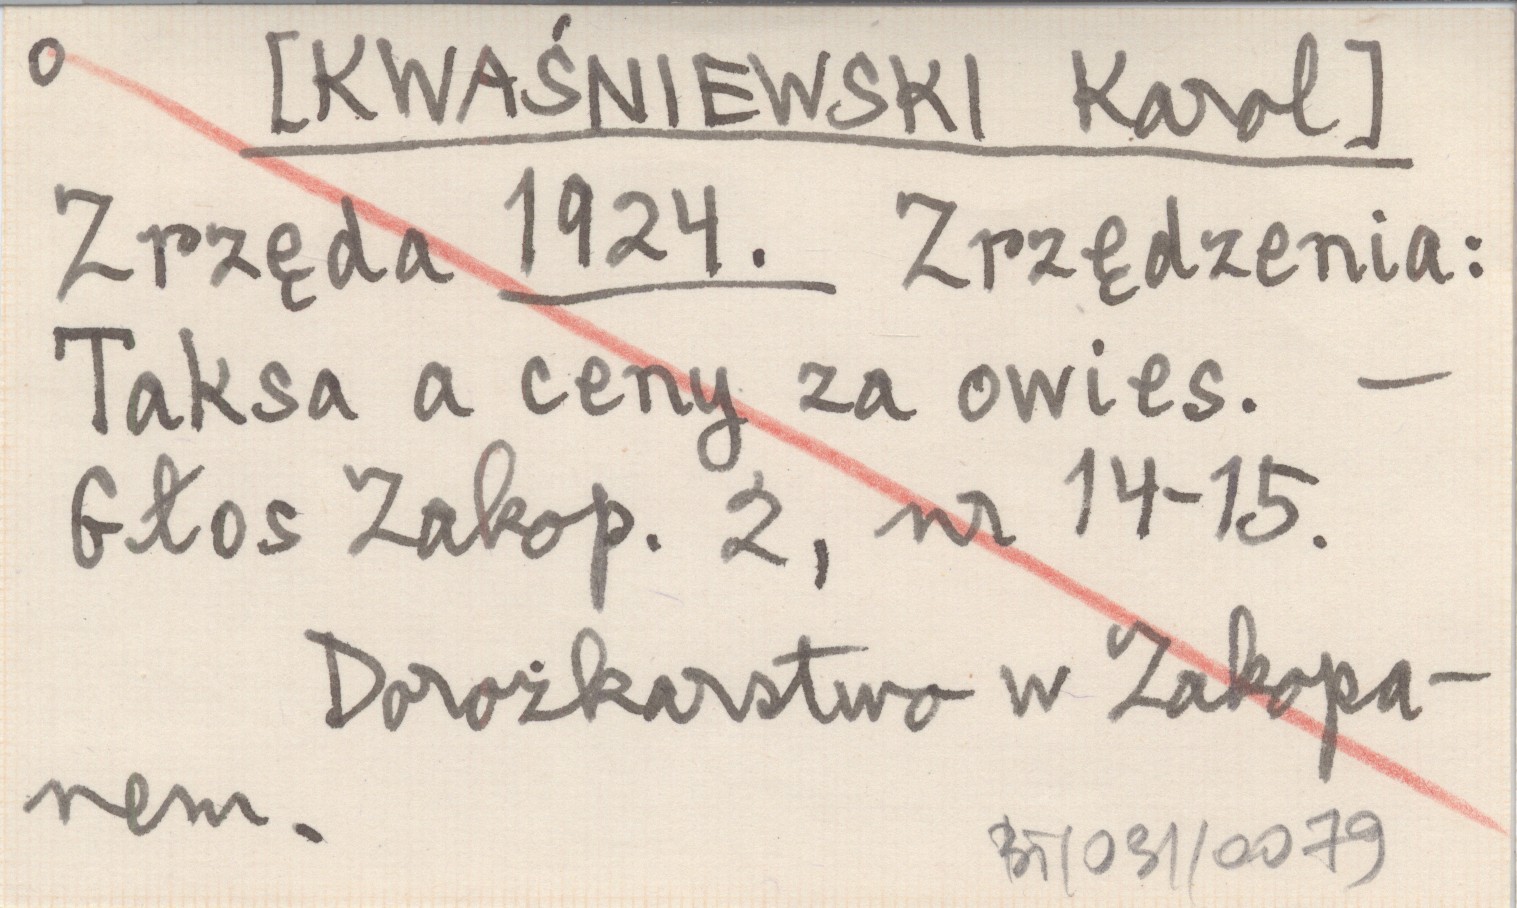 o [KWAŚNIEWSKI Karol]
Zrzęda 1924. Zrzędzenia:
Taksa a ceny za owies. —
Głos Zakop. 2, nr 14-15.
Dorożkarstwo w Zakopa-
nem.
BT/031/0079